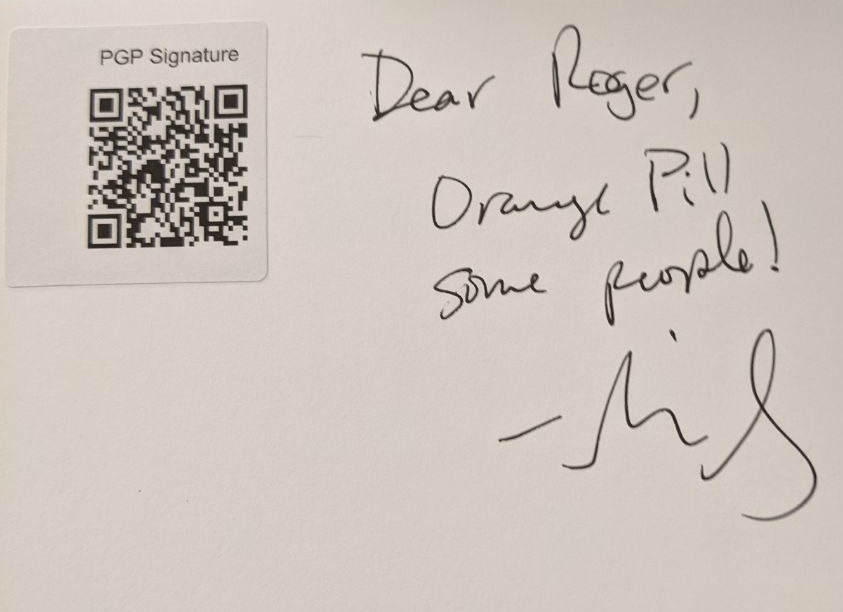 PGP Signature
Dear Roger,
Orange Pill
some people!